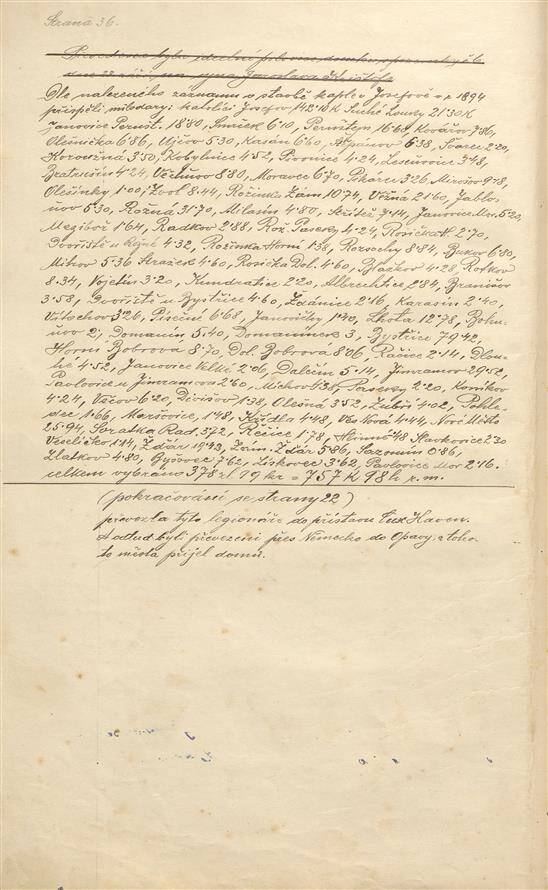 Strana 36.
Dle nalezeného záznamu o stavbě kaple v Josefově v r. 1894
přispěli milodary: katolíci Josefov 142·10 K Suché Louky 21·30 K
Janovice Pernšt. 18·80, Smrček 6·10, Pernštejn 16·64 Kovářov 7·86,
Olešnička 6·86, Ujčov 5·30, Kasán 6·60, Štěpánov 6·38, Švařec 2·20,
Korovžná 3·50, Kobylnice 4·52, Pivonice 4·24, Lesoňovice 3·48,
Bratrušín 4·24, Věchnov 8·80, Moravec 6·70, Pikárec 3·26, Mirošov 9·18,
Olešínky 1·00, Zvol 8·44, Rožínka Zám 10·74, Věžná 2·60, Jablo-
ňov 5·30, Rožná 31·70, Milasín 4·80, Střítež 7·14, Janovice Mor. 5·20
Meziboř 1·64, Radkov 2·88, Rož. Paseky 4·24, Rosička N 2·70,
Dvořiště u Rožné 4·32, Rožínka Horní 1·38, Rozsochy 8·84, Bukov 6·80,
Mitrov 5·36 Strážek 4·60, Rosička Dol. 4·60, Blažkov 4·28, Rotkov
8·34, Vojetín 3·20, Kundratice 2·20, Albrechtice 2·84, Branišov
3·58, Dvořiště u Bystřice 4·60, Ždánice 2·16, Karasín 2·40,
Vítochov 3·26, Písečné 6·68, Janovičky 1·40, Lhota 12·78, Bohu-
ňov 2; Domanín 5·40, Domanínek 3, Bystřice 79·42,
Horní Bobrová 8·70, Dol. Bobrová 8·06, Račice 2·14, Dlou-
hé 4·52, Janovice Velké 2·06, Dalečín 5·14, Jimramov 29·52,
Pavlovice u Jimramova 2·60, Míchov 4·38, Paseky 2·20, Koníkov
4·24, Večov 6·20, Divišov 1·38, Olešná 3·52, Zubří 4·02, Pohle-
dec 1·66, Maršovice 1·48, Křídla 4·48, Vlachovice 4·44, Nové Město
25·94, Svratka Rad. 3·72, Rečice 1·78, Hlinné ·48 Slavkovice 2·30
Veselíčko 1·14, Žďár 19·42, Zám. Žďár 5·86, Sazomín 0·86,
Zlatkov 4·80, Byšovec 7·62, Lískovec 3·62, Pavlovice Mor 2·16.
celkem vybráno 378 zl 99 kr = 757 K 98 h r. m.
(pokračování se strany 22)
převezla tyto legionáře do přístavu Cuxhaven.
A odtud byli převezeni přes Německo do Opavy, z toho-
to města přijel domů.